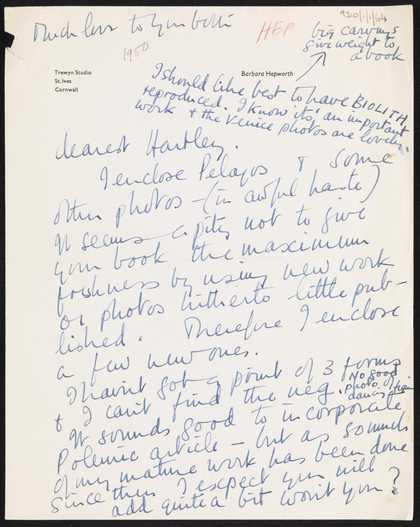 Much love to you both
HEP
9310/1/1/64
1950
big carvings
give weight to
a book
Trewyn Studio
St. Ives
Cornwall
Barbara Hepworth
I should like best to have BIOLITH
reproduced. I know it's an important
work & the Venice photos are lovely
dearest Hartley.
I enclose Pelagos & some
other photos – (in awful haste)
It seems a pity not to give
your book the maximum
freshness by using new work
or photos hitherto little pub-
lished. Therefore I enclose
a few new ones.
I havnt got a print of 3 forms
& I can't find the neg.
No good
photo of
dancing figure
It sounds good to incorporate
Polemic article – but as so much
of my mature work has been done
since then I expect you will
add quite a bit wont you?